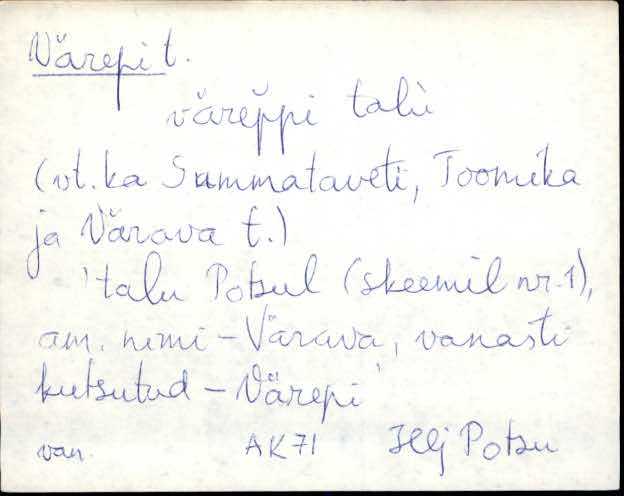 Värepi t.
värep̆pi talù
(vt. ka Summataveti, Toomika
ja Värava t.)
'talu Potsul (skeemil nr. 1),
am. nimi - Värava, vanasti
kutsutud - Värepi'
van. AK 71 Ilj Potsu